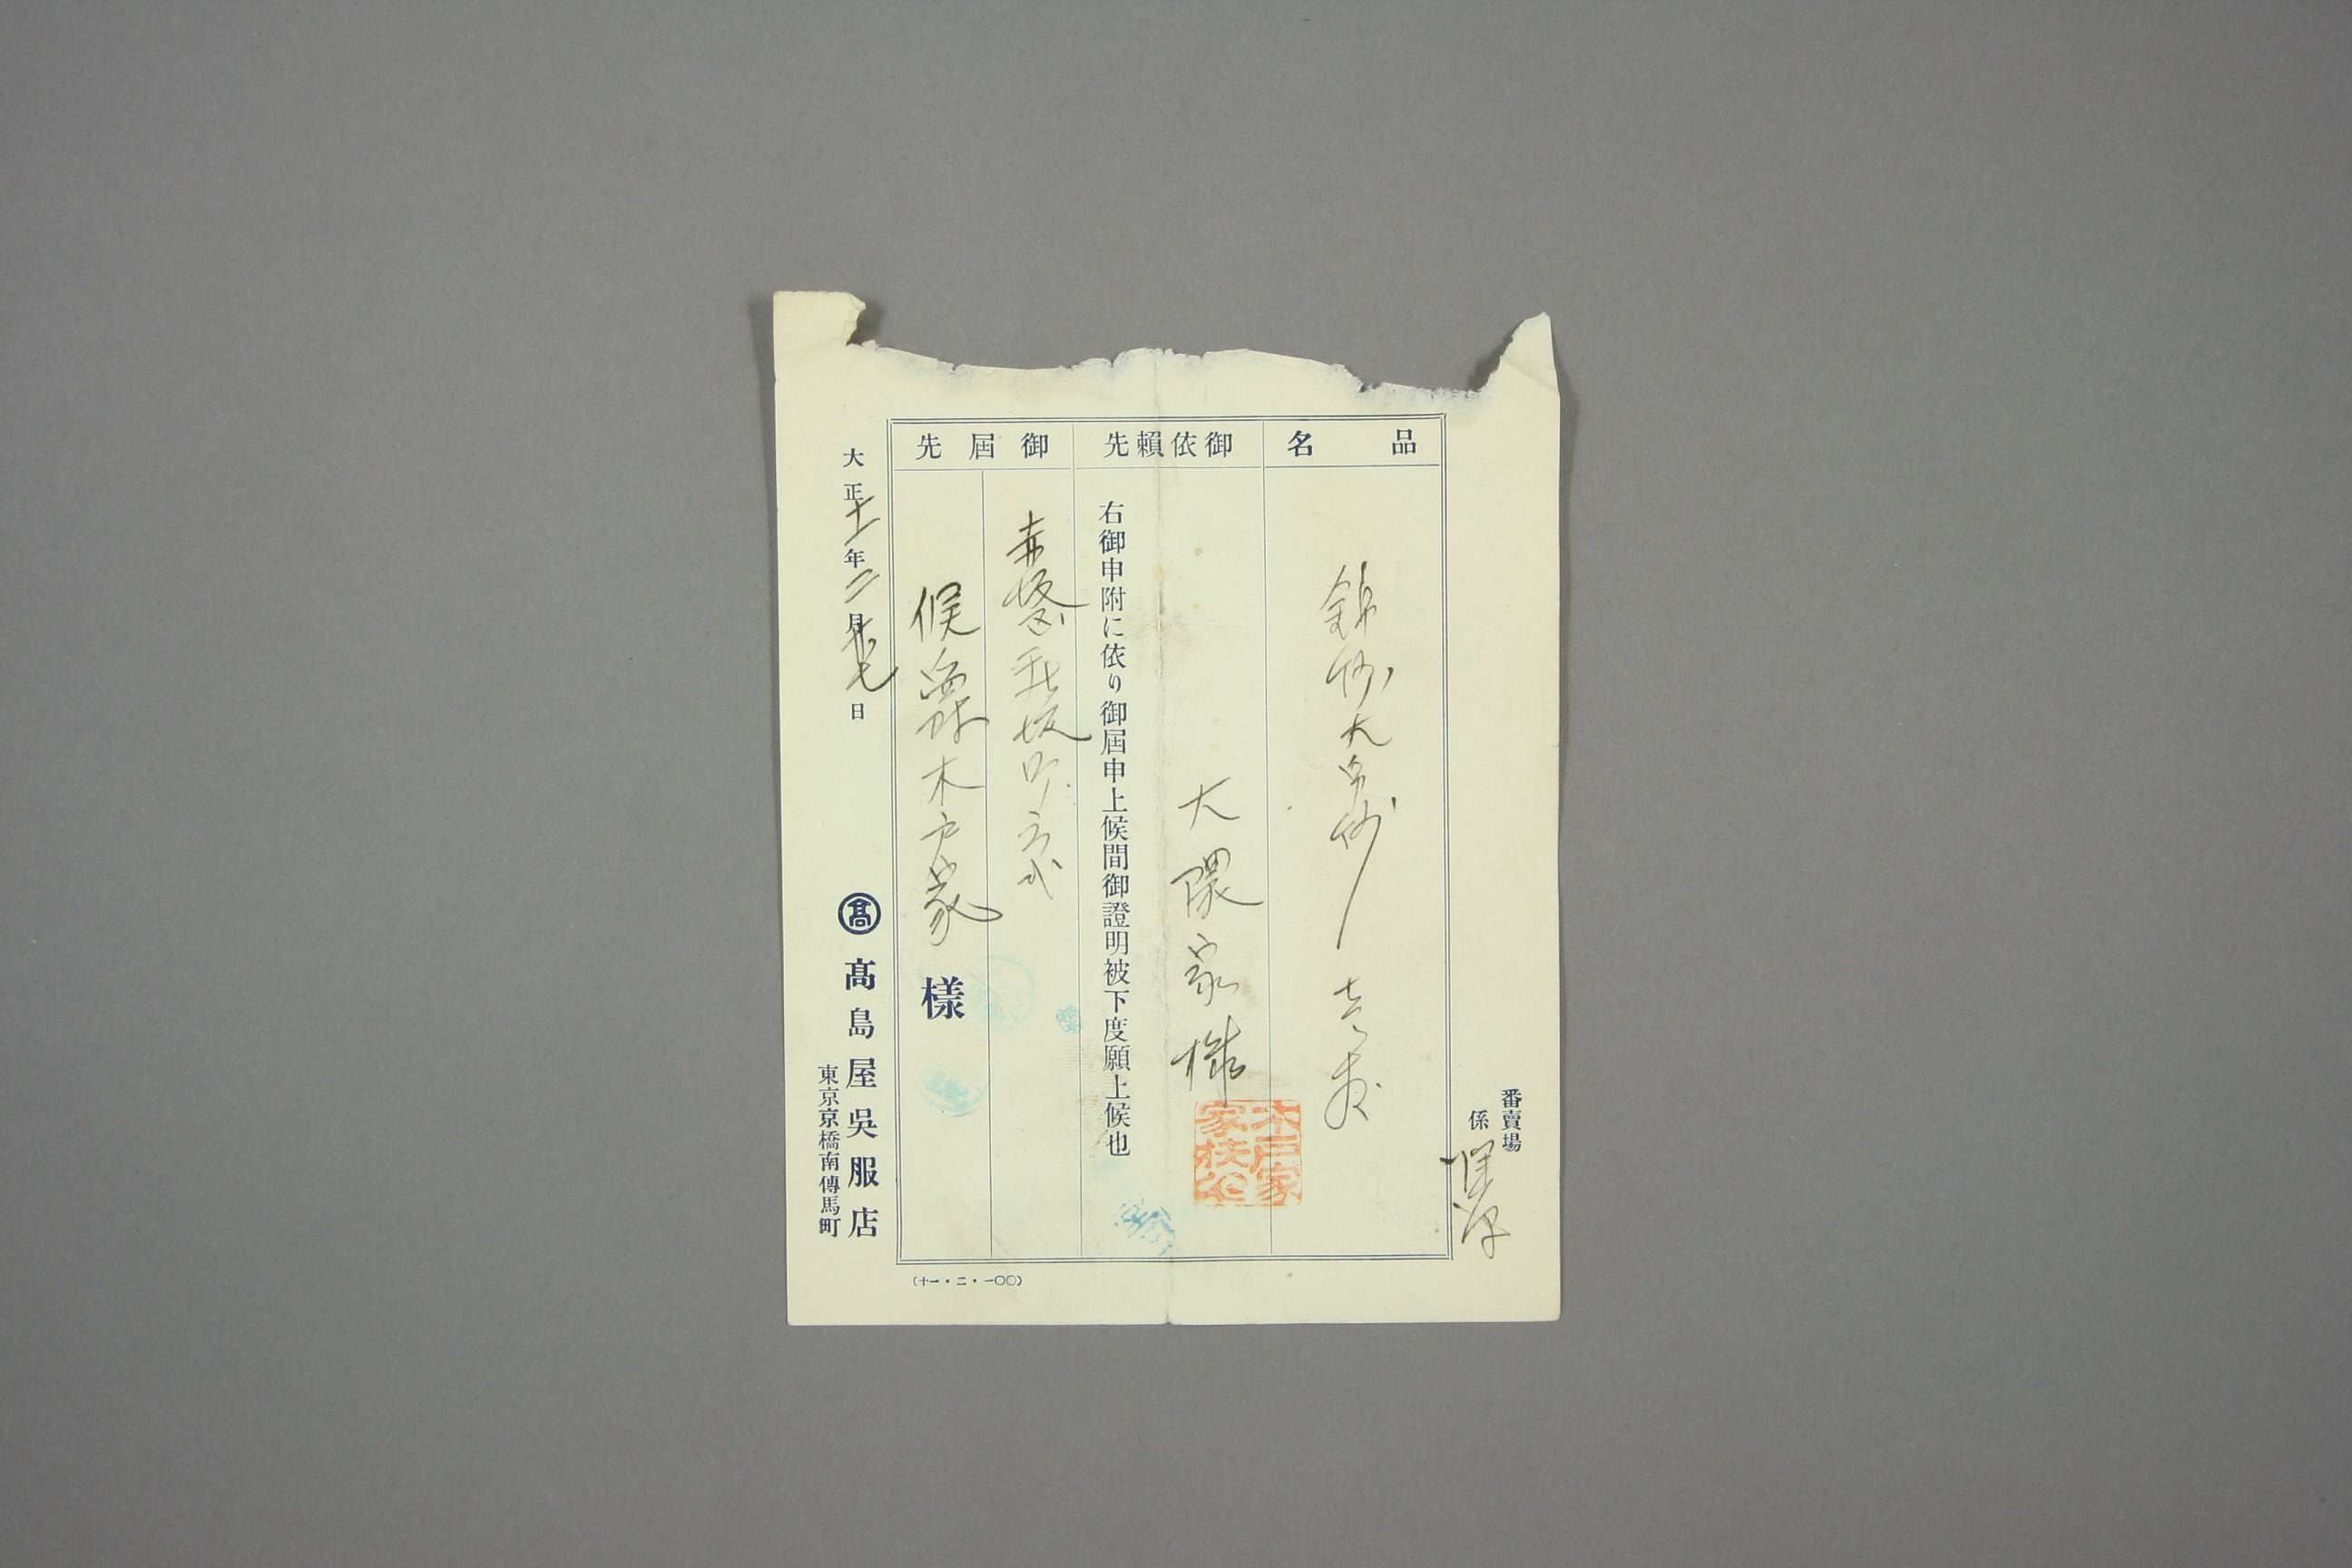 番賣場
係
品名
錦紗大帛紗 壱枚
御依頼先
大隈家様
木戸家家扶公
右御申附に依り御屆申上候間御證明被下度願上候也
御屆先
赤坂區新坂町
候爵木戸家
様
大正十一年二月廿七日
髙
髙島屋吳服店
東京京橋南傳馬町
(十一・二・一〇〇)